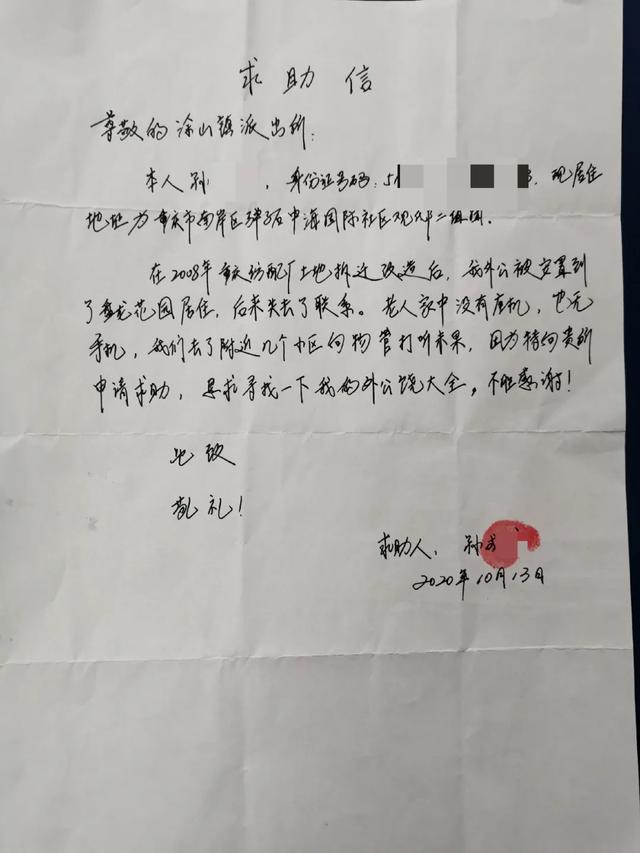 求助信
尊敬的涂山镇派出所:
本人孙 , 身份证号码:5 , 现居住
地址为重庆市南岸区弹子石中海国际社区观 二组团.
在2008年重庆纺配厂土地拆迁改造后,我外公被安置到
了 龙花园居住,后来失去了联系。老人家中没有座机,也无
手机,我们去了附近几个小区向物管打听未果,因为特向贵所
申请求助,恳求寻找一下我的外公饶大全。不胜感谢!
此致
敬礼!
求助人: 孙
2020年10月13日